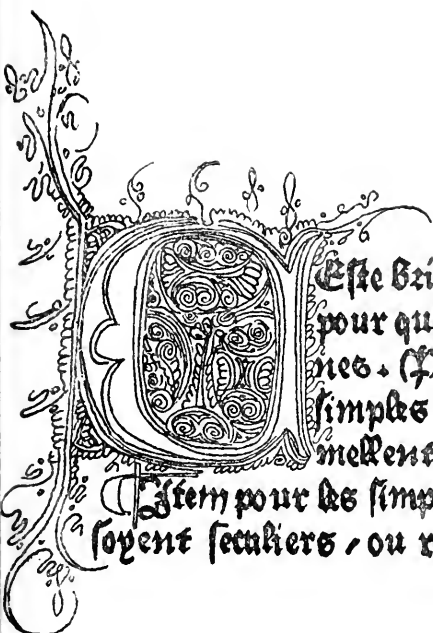 CEste bri
pour qu
nes.
simples
mellent
¶ Item pour les simp
soyent seculiers / ou r